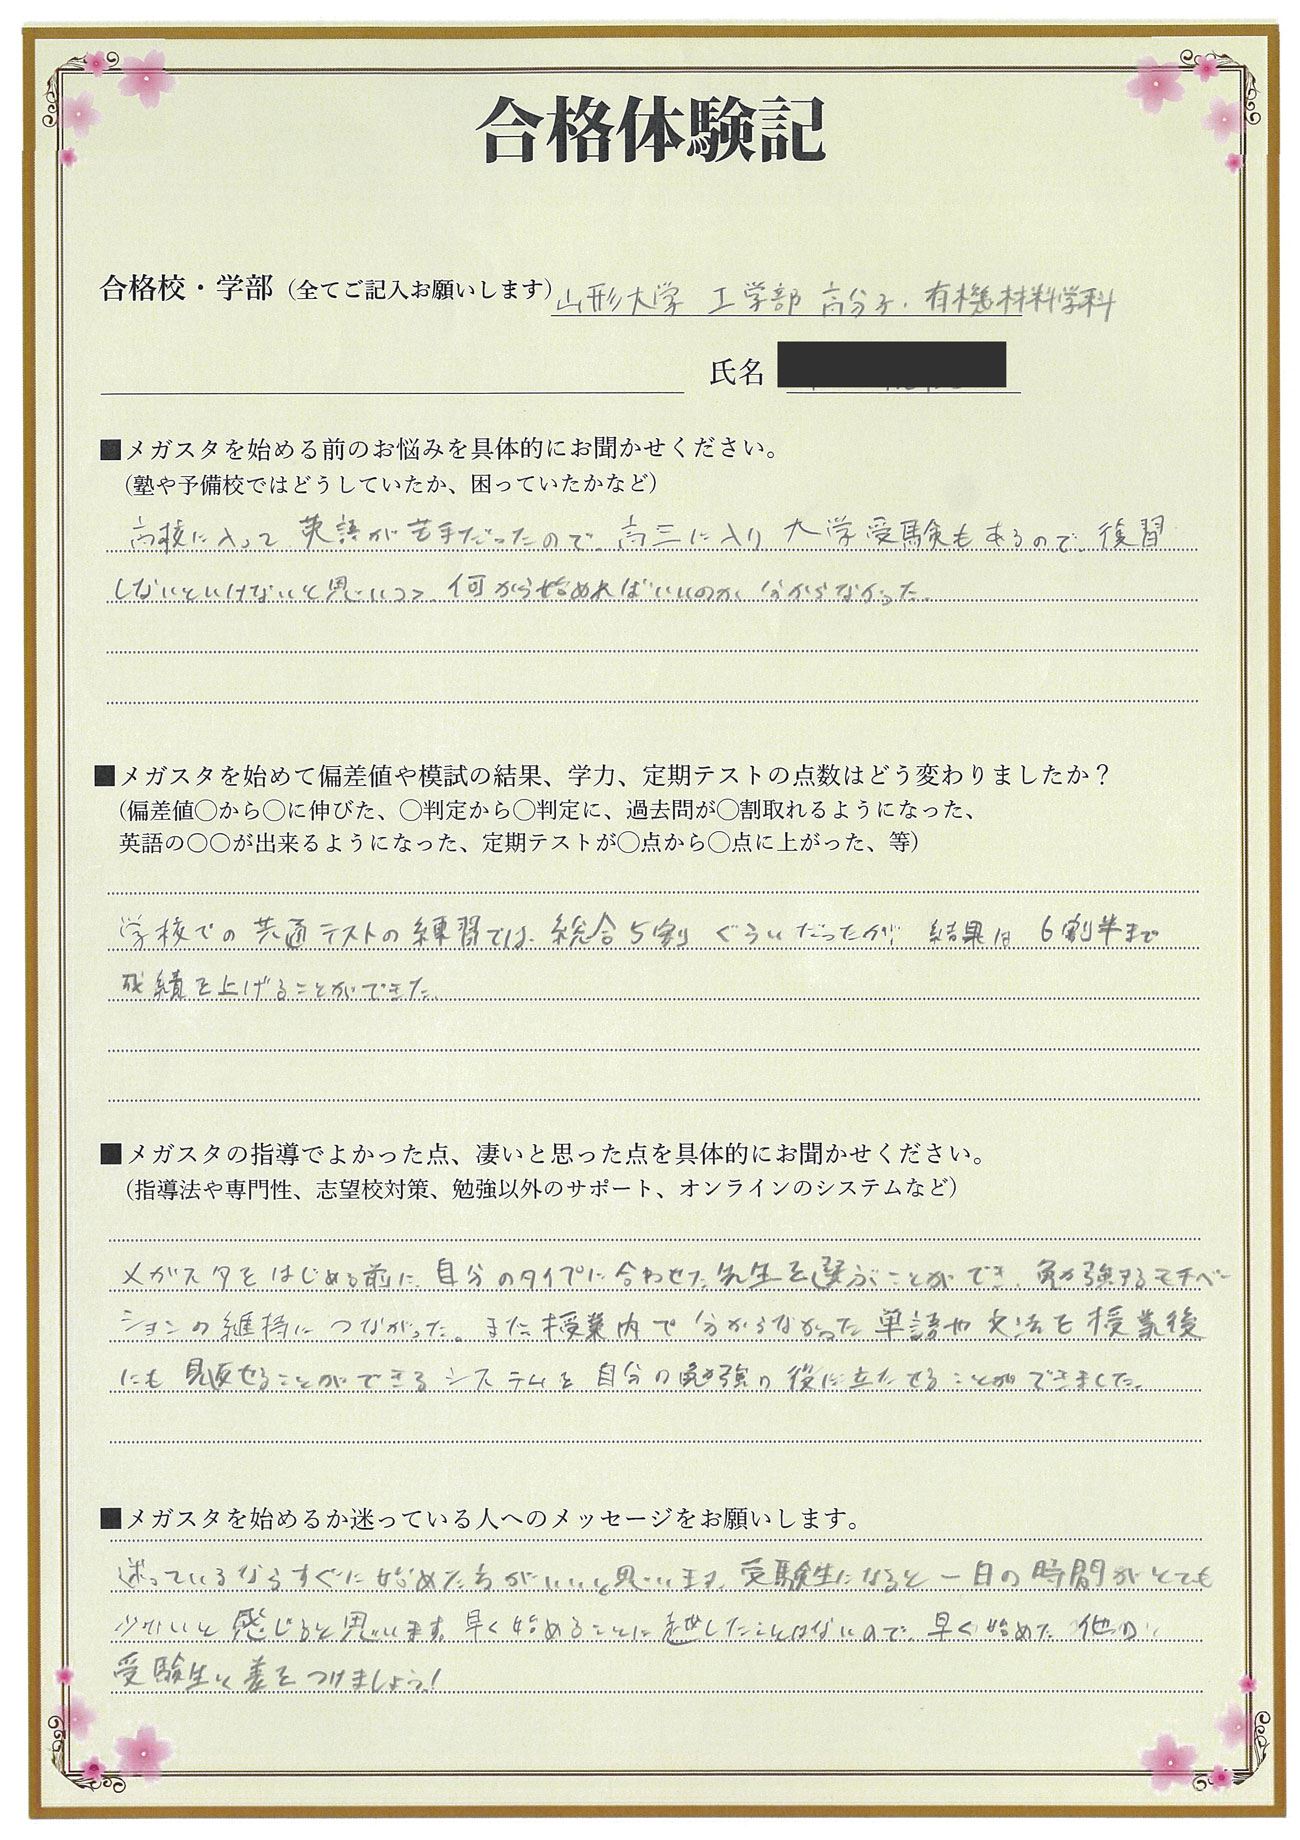 合格体験記
合格校・学部（全てご記入お願いします）山形大学 工学部 高分子・有機材料学科
氏名
■メガスタを始める前のお悩みを具体的にお聞かせください。
（塾や予備校ではどうしていたか、困っていたかなど）
高校に入って英語が苦手だったので、高三に入り大学受験もあるので、復習
しないといけないと思いつつ、何から始めればいいのか分からなかった。
■メガスタを始めて偏差値や模試の結果、学力、定期テストの点数はどう変わりましたか？
（偏差値○から○に伸びた、○判定から○判定に、過去問が○割取れるようになった、
英語の○○が出来るようになった、定期テストが○点から○点に上がった、等）
学校での共通テストの練習では、総合5割ぐらいだったが、結果は6割半まで
成績を上げることができた。
■メガスタの指導でよかった点、凄いと思った点を具体的にお聞かせください。
（指導法や専門性、志望校対策、勉強以外のサポート、オンラインのシステムなど）
メガスタをはじめる前に、自分のタイプに合わせた先生を選ぶことができ、勉強するモチベー
ションの維持につながった。また授業内で分からなかった単語や文法を授業後
にも見返せることができるシステムを自分の勉強の役に立たせることができました。
■メガスタを始めるか迷っている人へのメッセージをお願いします。
迷っているならすぐに始めた方がいいと思います。受験生になると一日の時間がとても
少ないと感じると思います。早く始めることに越したことはないので、早く始めた他の
受験生と差をつけましょう！